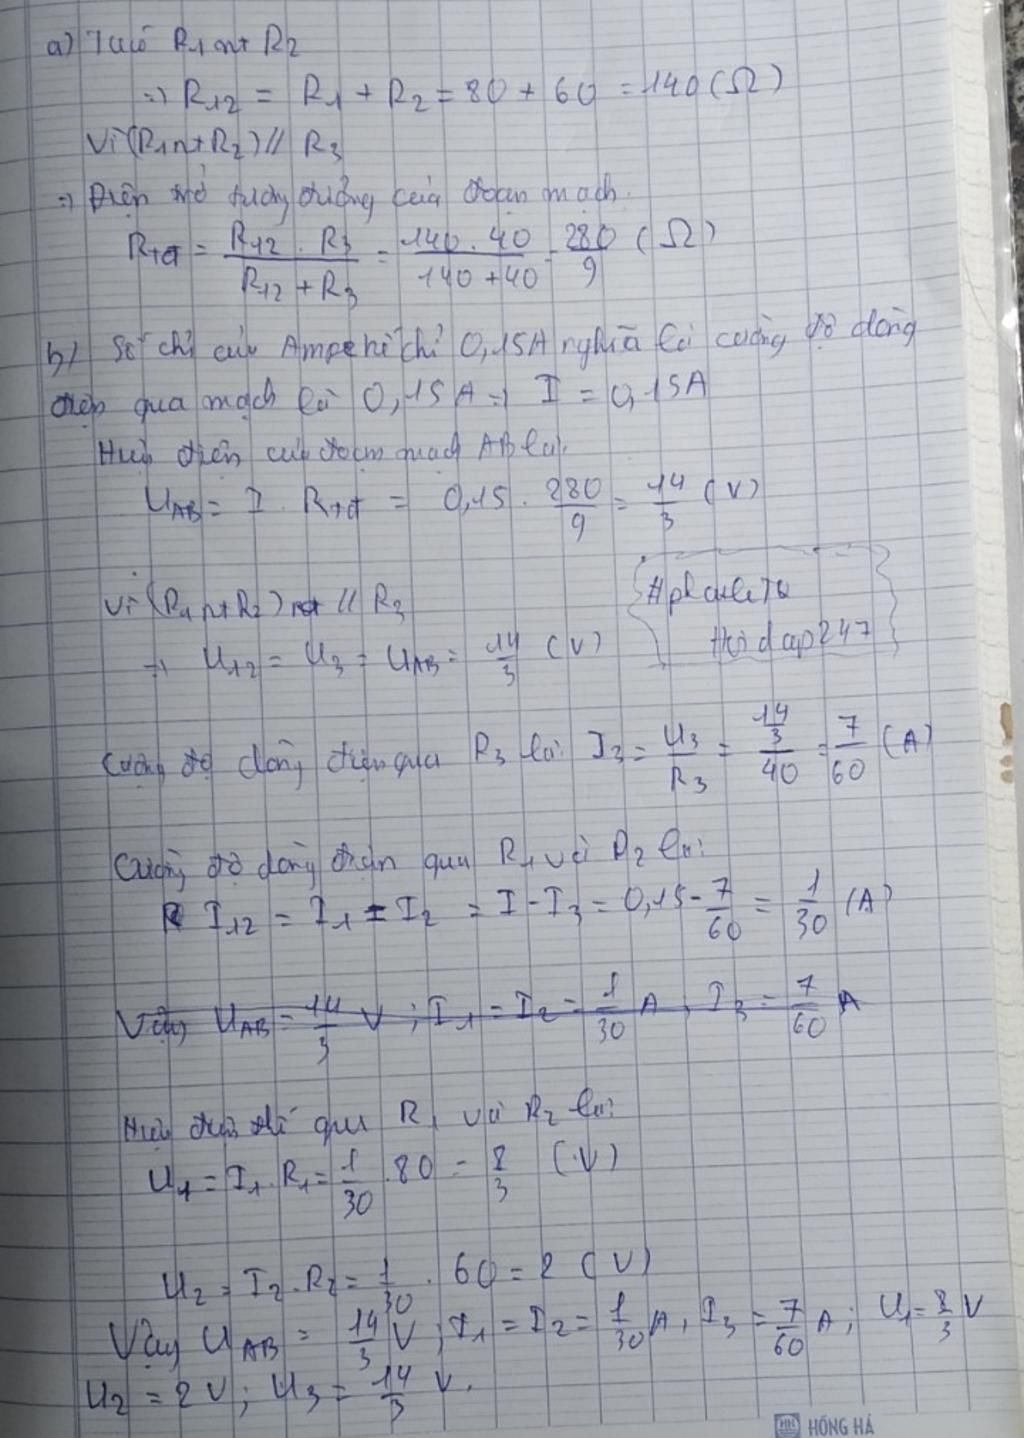 a) R₁ nt R₂
=> R₁₂ = R₁ + R₂ = 80 + 60 = 140 (Ω)
Vì (R₁ nt R₂) // R₃
=> Điện trở tương đương của đoạn mạch.
Rtđ = (R₁₂ . R₃)/(R₁₂ + R₃) = (140 . 40)/(140 + 40) = 280/9 (Ω)
b) Số chỉ của Ampe kế chỉ 0,15A nghĩa là cường độ dòng
điện qua mạch là 0,15 A => I = 0,15A
Hiệu điện của đoạn mạch AB là:
UAB = I . Rtđ = 0,15 . 280/9 = 14/3 (V)
Vì (R₁ nt R₂) // R₃
=> U₁₂ = U₃ = UAB = 14/3 (V)
hoidap247
Cường độ dòng điện qua R₃ là: I₃ = U₃/R₃ = (14/3)/40 = 7/60 (A)
Cường độ dòng điện qua R₁ và R₂ là:
I₁₂ = I₁ = I₂ = I - I₃ = 0,15 - 7/60 = 1/30 (A)
Vậy UAB = 14/3 V ; I₁ = I₂ = 1/30 A, I₃ = 7/60 A
Hiệu điện thế qua R₁ và R₂ là:
U₁ = I₁ . R₁ = 1/30 . 80 = 8/3 (V)
U₂ = I₂ . R₂ = 1/30 . 60 = 2 (V)
Vậy UAB = 14/3 V ; I₁ = I₂ = 1/30 A, I₃ = 7/60 A ; U₁ = 8/3 V
U₂ = 2 V ; U₃ = 14/3 V.
HH HỒNG HÀ